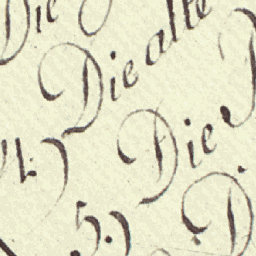 Die
Die alte
4.) Die
5.) D